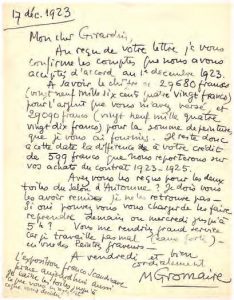 17 déc. 1923
Mon cher Girardin,
Au reçu de votre lettre je vous
confirme les comptes que nous avons
acceptés d'accord au 1er décembre 1923.
A savoir le chiffre de 29680 francs
(vingt neuf mille six cent quatre vingt francs)
pour l'argent que vous m'avez versé, et
29090 francs (vingt neuf mille quatre
vingt dix francs) pour la somme de peinture
que je vous ai fournie. Il reste donc
à cette date la différence à votre crédit
de 590 francs que nous reporterons sur
vos achats du contrat 1923-1925.
Avez vous les reçus pour les deux
toiles du Salon d'Automne? Je dois vous
les avoir remises, je ne les retrouve pas.
Si oui pouvez vous vous charger de les faire
reprendre demain ou mercredi jusqu'à
5h? Vous me rendrez grand service
car je travaille pas mal (eaux fortes)
en vue des Petites fermes
A vendredi bien
cordialement
M Gromaire
L'exposition franco-scandinave
ferme aujourd'hui aussi